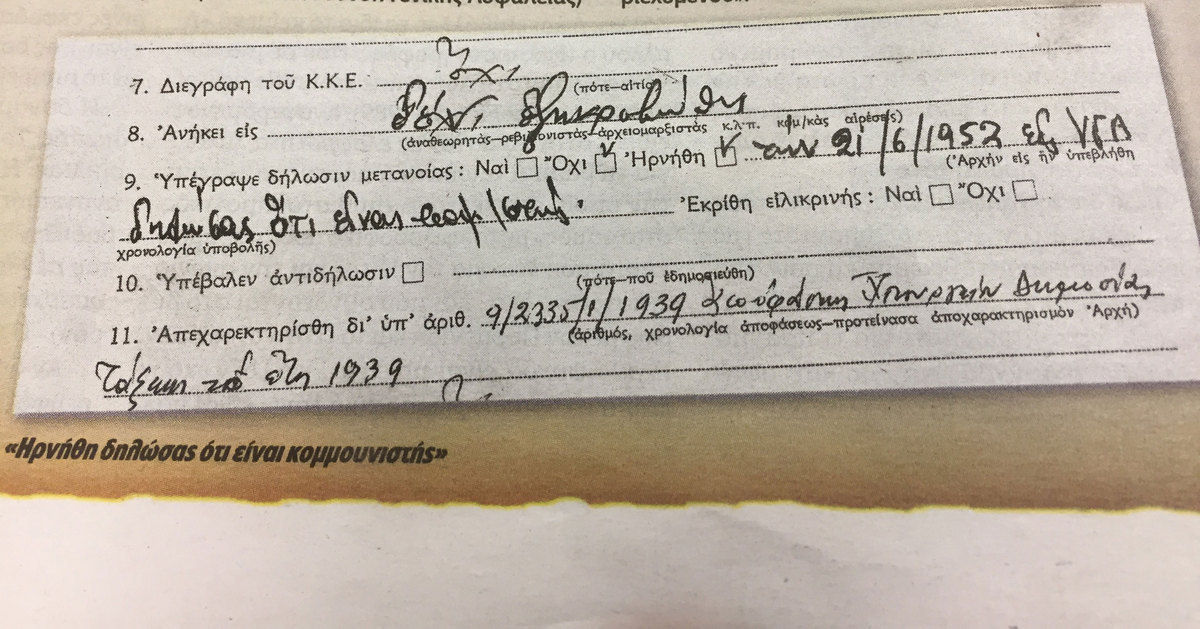 7. Διεγράφη τοῦ Κ.Κ.Ε. ὄχι
(πότε—αἰτία)
8. Ἀνήκει εἰς δέν ἐξηκριβώθη
(ἀναθεωρητὰς—ρεβιζιονιστὰς—ἀρχειομαρξιστὰς κ.λ.π. κομ/κὰς αἱρέσεις)
9. Ὑπέγραψε δήλωσιν μετανοίας: Ναὶ Ὄχι Ἠρνήθη τήν 21/6/1952 εἰς ΥΓΑ
(Ἀρχὴν εἰς ἣν ὑπεβλήθη
δηλώσας ὅτι εἶναι κομ/στής. Ἐκρίθη εἰλικρινής: Ναὶ Ὄχι
χρονολογία ὑποβολῆς)
10. Ὑπέβαλεν ἀντιδήλωσιν
(πότε—ποῦ ἐδημοσιεύθη)
11. Ἀπεχαρεκτηρίσθη δι' ὑπ' ἀριθ. 9/2335/1/1939 Ὑπουργείου Δημοσίας
(ἀριθμός, χρονολογία ἀποφάσεως—προτείνασα ἀποχαρακτηρισμὸν Ἀρχὴ)
Τάξεως τοῦ ἔτη 1939
«Ηρνήθη δηλώσας ότι είναι κομμουνιστής»